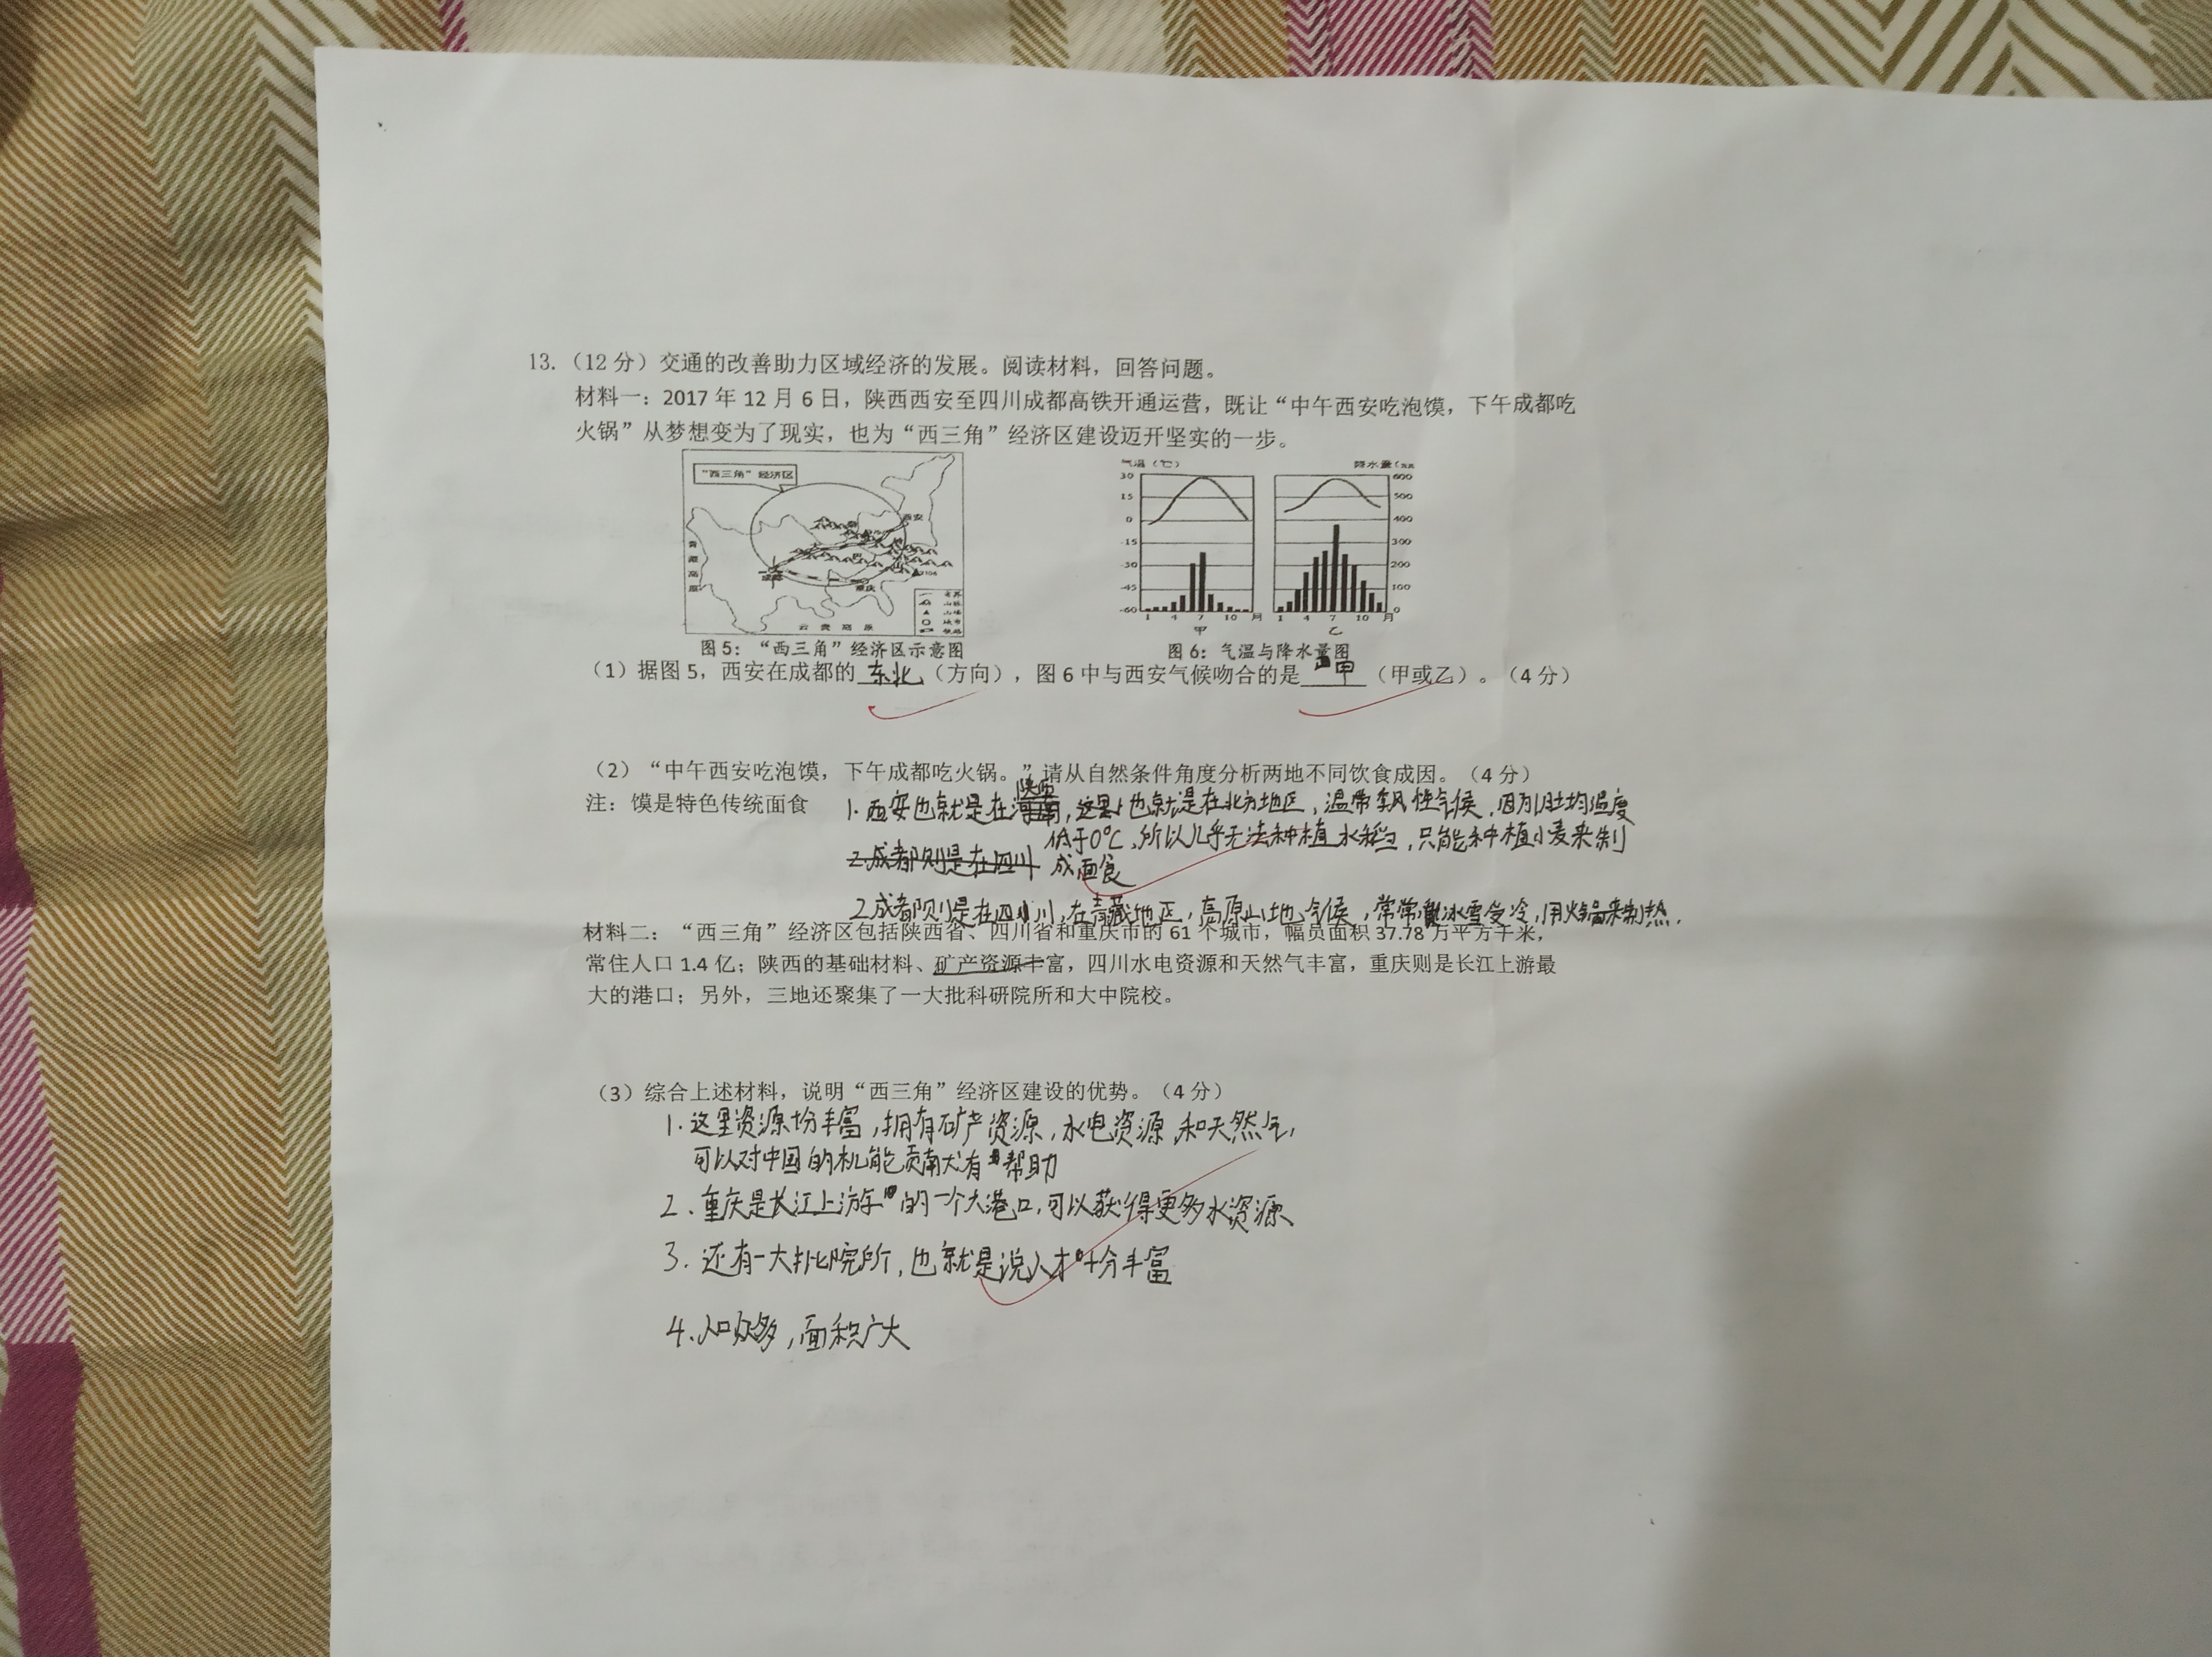 13.（12 分）交通的改善助力区域经济的发展。阅读材料，回答问题。
材料一：2017 年 12 月 6 日，陕西西安至四川成都高铁开通运营，既让“中午西安吃泡馍，下午成都吃
火锅”从梦想变为了现实，也为“西三角”经济区建设迈开坚实的一步。
“西三角”经济区
西安
成都
重庆
青藏高原
云贵高原
省界
山脉
山峰
城市
铁路
图 5：“西三角”经济区示意图
气温（℃）
降水量（mm
30
15
0
-15
-30
-45
-60
600
500
400
300
200
100
0
1 4 7 10 月
甲
1 4 7 10 月
乙
图 6：气温与降水量图
（1）据图 5，西安在成都的 东北 （方向），图 6 中与西安气候吻合的是 甲 （甲或乙）。（4 分）
（2）“中午西安吃泡馍，下午成都吃火锅。”请从自然条件角度分析两地不同饮食成因。（4 分）
注：馍是特色传统面食
陕西
1. 西安也就是在海南，这里也就是在北方地区，温带季风性气候，因为1月均温度
低于0℃，所以几乎无法种植水稻，只能种植小麦来制
2.成都则是在四川
成面食
2.成都则是在四川，在青藏地区，高原山地气候，常常冰雪受冷，用火锅来制热.
材料二：“西三角”经济区包括陕西省、四川省和重庆市的 61 个城市，幅员面积 37.78 万平方千米，
常住人口 1.4 亿；陕西的基础材料、矿产资源丰富，四川水电资源和天然气丰富，重庆则是长江上游最
大的港口；另外，三地还聚集了一大批科研院所和大中院校。
（3）综合上述材料，说明“西三角”经济区建设的优势。（4 分）
1.这里资源十分丰富，拥有矿产资源，水电资源，和天然气，
可以对中国的机能贡献有帮助
2.重庆是长江上游的一个大港口，可以获得更多水资源
3.还有一大批院所，也就是说人才十分丰富
4.人口众多，面积广大